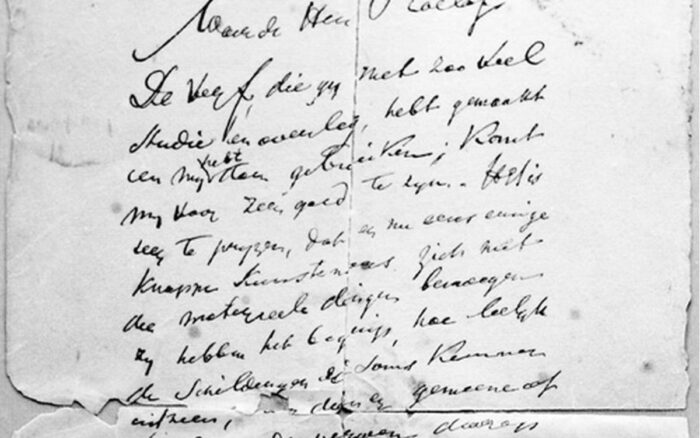 Waarde Heer
De verf, die gij met zoo veel
studie en overleg, hebt gemaakt
en mij hebt doen gebruiken; komt
mij voor zeer goed te zijn. Het is
zeer te prijzen, dat er nu eens eenige
knappe kunstenaars zich met
die materieele dingen bemoeijen
zij hebben het begrip, hoe leelijk
de schilderijen soms kunnen
gemeene of